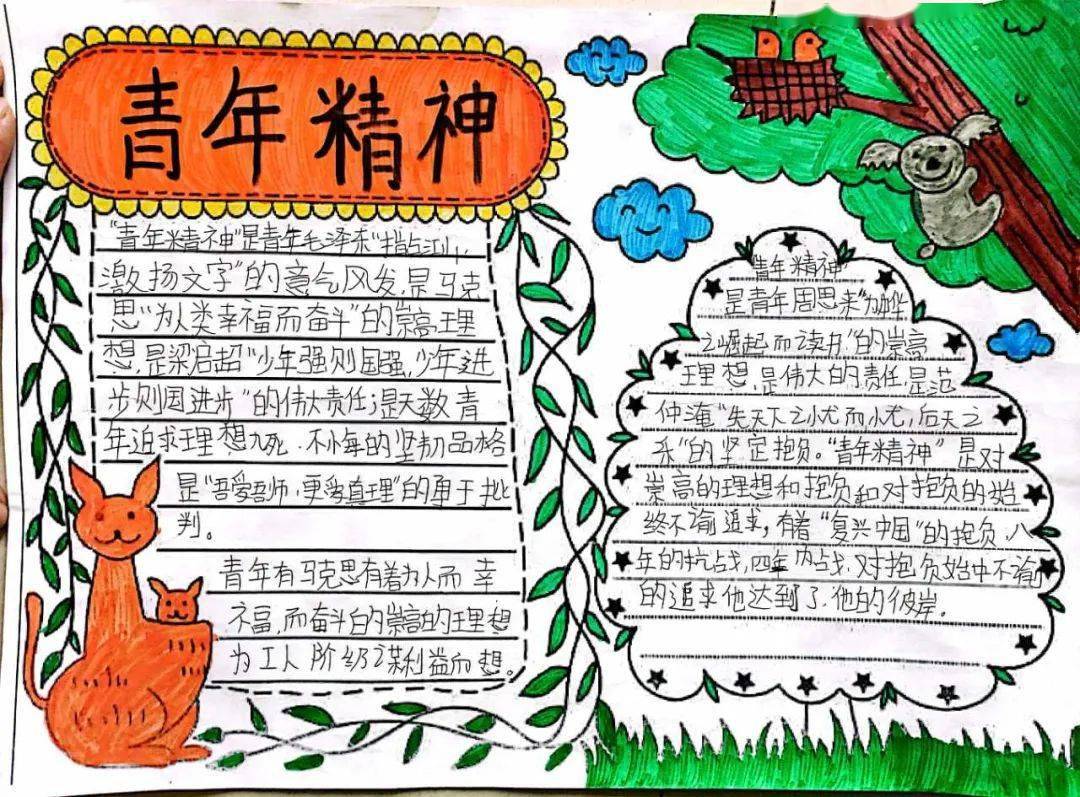 青年精神
"青年精神"是青年毛泽东"指点江山,
激扬文字"的意气风发,是马克
思"为人类幸福而奋斗"的崇高理
想,是梁启超"少年强则国强,少年进
步则国进步"的伟大责任;是无数青
年追求理想九死不悔的坚韧品格
是"吾爱吾师,更爱真理"的勇于批
判。
青年有马克思有着为人而幸
福,而奋斗的崇高的理想
为工人阶级谋利益而想。
"青年精神"
是青年周恩来"为中华
之崛起而读书"的崇高
理想,是伟大的责任,是范
仲淹"先天下之忧而忧,后天之
乐"的坚定抱负。"青年精神"是对
崇高的理想和抱负和对抱负的始
终不渝追求,有着"复兴中国"的抱负,八
年的抗战,四年内战,对抱负始中不渝
的追求他达到了,他的彼岸。